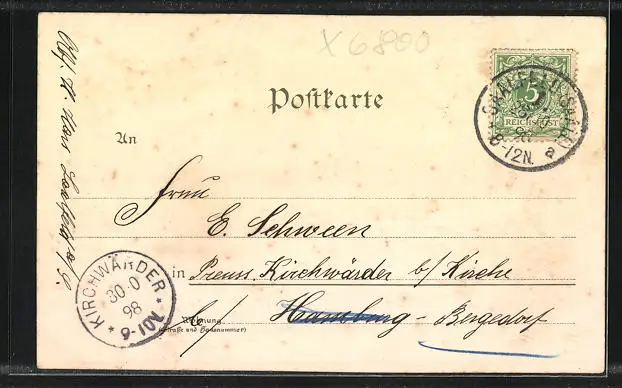 X 6800
Postkarte
5
REICHSPOST
SAALFELD (SAALE)
98
8-12N. a
An
Frau
E. Schween
in Preuss. Kirchwärder b/ Kirche
Wohnung
(Straße und Hausnummer)
b/ Hamburg - Bergedorf
KIRCHWÄRDER
30-0
98
* 9-10V. *
Abs. H. Saalfeld a/S.